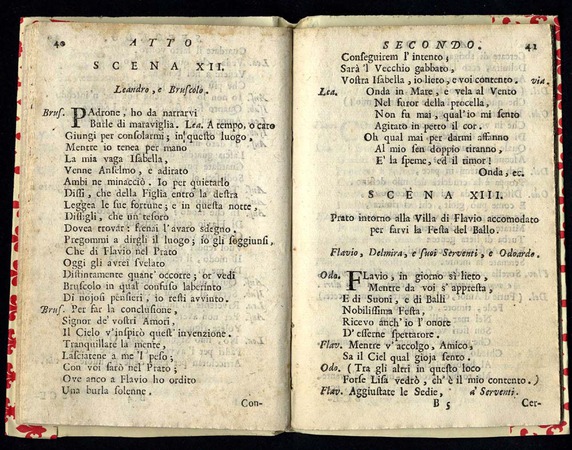 40 ATTO
SCENA XII.
Leandro, e Bruscolo.
Brus. PAdrone, ho da narrarvi
Baule di maraviglia. Lea. A tempo, o caro
Giungi per consolarmi; in questo luogo,
Mentre io tenea per mano
La mia vaga Isabella,
Venne Anselmo, e adirato
Ambi ne minacciò. Io per quietarlo
Dissi, che della Figlia entro la destra
Leggea le sue fortune; e in questa notte,
Dissigli, che un tesoro
Dovea trovar: frenà l'avaro sdegno.
Pregommi a dirgli il luogo; io gli soggiunsi,
Che di Flavio nel Prato
Oggi gli avrei svelato
Distintamente quant' occorre; or vedi
Bruscolo in qual confuso laberinto
Di nojosi pensieri, io resti avvinto.
Brus. Per far la conclusione,
Signor de' vostri Amori,
Il Cielo v'inspirò quest' invenzione.
Tranquillate la mente,
Lasciatene a me 'l peso;
Con voi sarò nel Prato;
Ove anco a Flavio ho ordito
Una burla solenne.
Con-
SECONDO. 41
Conseguirem l'intento;
Sarà 'l Vecchio gabbato,
Vostra Isabella, io lieto, e voi contento. via.
Lea. Onda in Mare, e vela al Vento
Nel furor della procella,
Non fu mai, qual'io mi sento
Agitato in petto il cor.
Oh qual mai per darmi affanno
Al mio sen doppio tiranno,
E' la speme, ed il timor!
Onda, ec.
SCENA XIII.
Prato intorno alla Villa di Flavio accomodato
per farvi la Festa del Ballo.
Flavio, Delmira, e suoi Serventi, e Odoardo.
Odo. FLavio, in giorno sì lieto,
Mentre da voi s'appresta,
E di Suoni, e di Balli
Nobilissima Festa,
Ricevo anch' io l'onore
D' esserne spettatore.
Flav. Mentre v'accolgo, Amico,
Sa il Ciel qual gioja sento.
Odo. (Tra gli altri in questo loco
Forse Lisa vedrò, ch'è il mio contento.)
Flav. Aggiustate le Sedie, a' Serventi.
B 5 Cer-